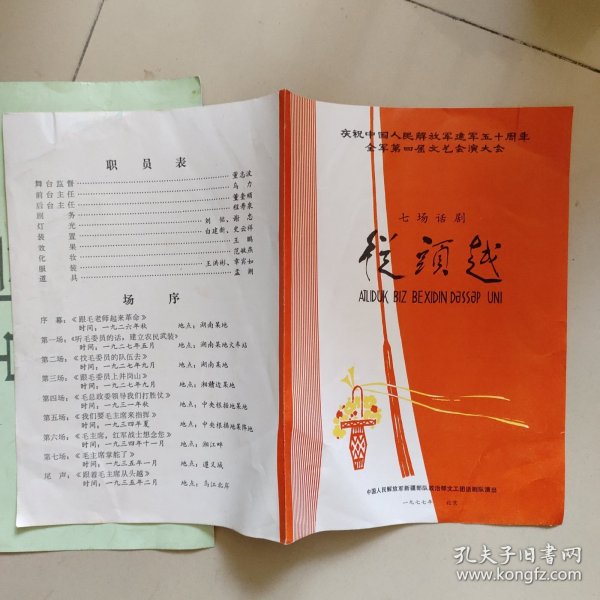 职员表
舞台监督 董志波
前台主任 乌力
后台主任 董奎晴
剧务 程寿泉
灯光 刘铭、谢忠
装置 白建新、史云祥
效果 王鹏
化妆 范敏燕
服装 王洪彬、章宾如
道具 孟测
场序
序幕：《跟毛老师起来革命》
时间：一九二六年秋 地点：湖南某地
第一场：《听毛委员的话，建立农民武装》
时间：一九二七年五月 地点：湖南某地火车站
第二场：《找毛委员的队伍去》
时间：一九二七年九月 地点：湖南某地
第三场：《跟毛委员上井岗山》
时间：一九二七年九月 地点：湘赣边某地
第四场：《毛总政委领导我们打胜仗》
时间：一九三一年秋 地点：中央根据地某地
第五场：《我们要毛主席来指挥》
时间：一九三四年夏 地点：中央根据地某阵地
第六场：《毛主席，红军战士想念您》
时间：一九三四年十一月 地点：湘江畔
第七场：《毛主席掌舵了》
时间：一九三五年一月 地点：遵义城
尾声：《跟着毛主席从头越》
时间：一九三五年二月 地点：乌江北岸
庆祝中国人民解放军建军五十周年
全军第四届文艺会演大会
七场话剧
從頭越
ATLIDUK BIZ BEXIDIN DəSSəP UNI
中国人民解放军新疆部队政治部文工团话剧队演出
一九七七年 北京
孔夫子旧书网
www.kongfz.com